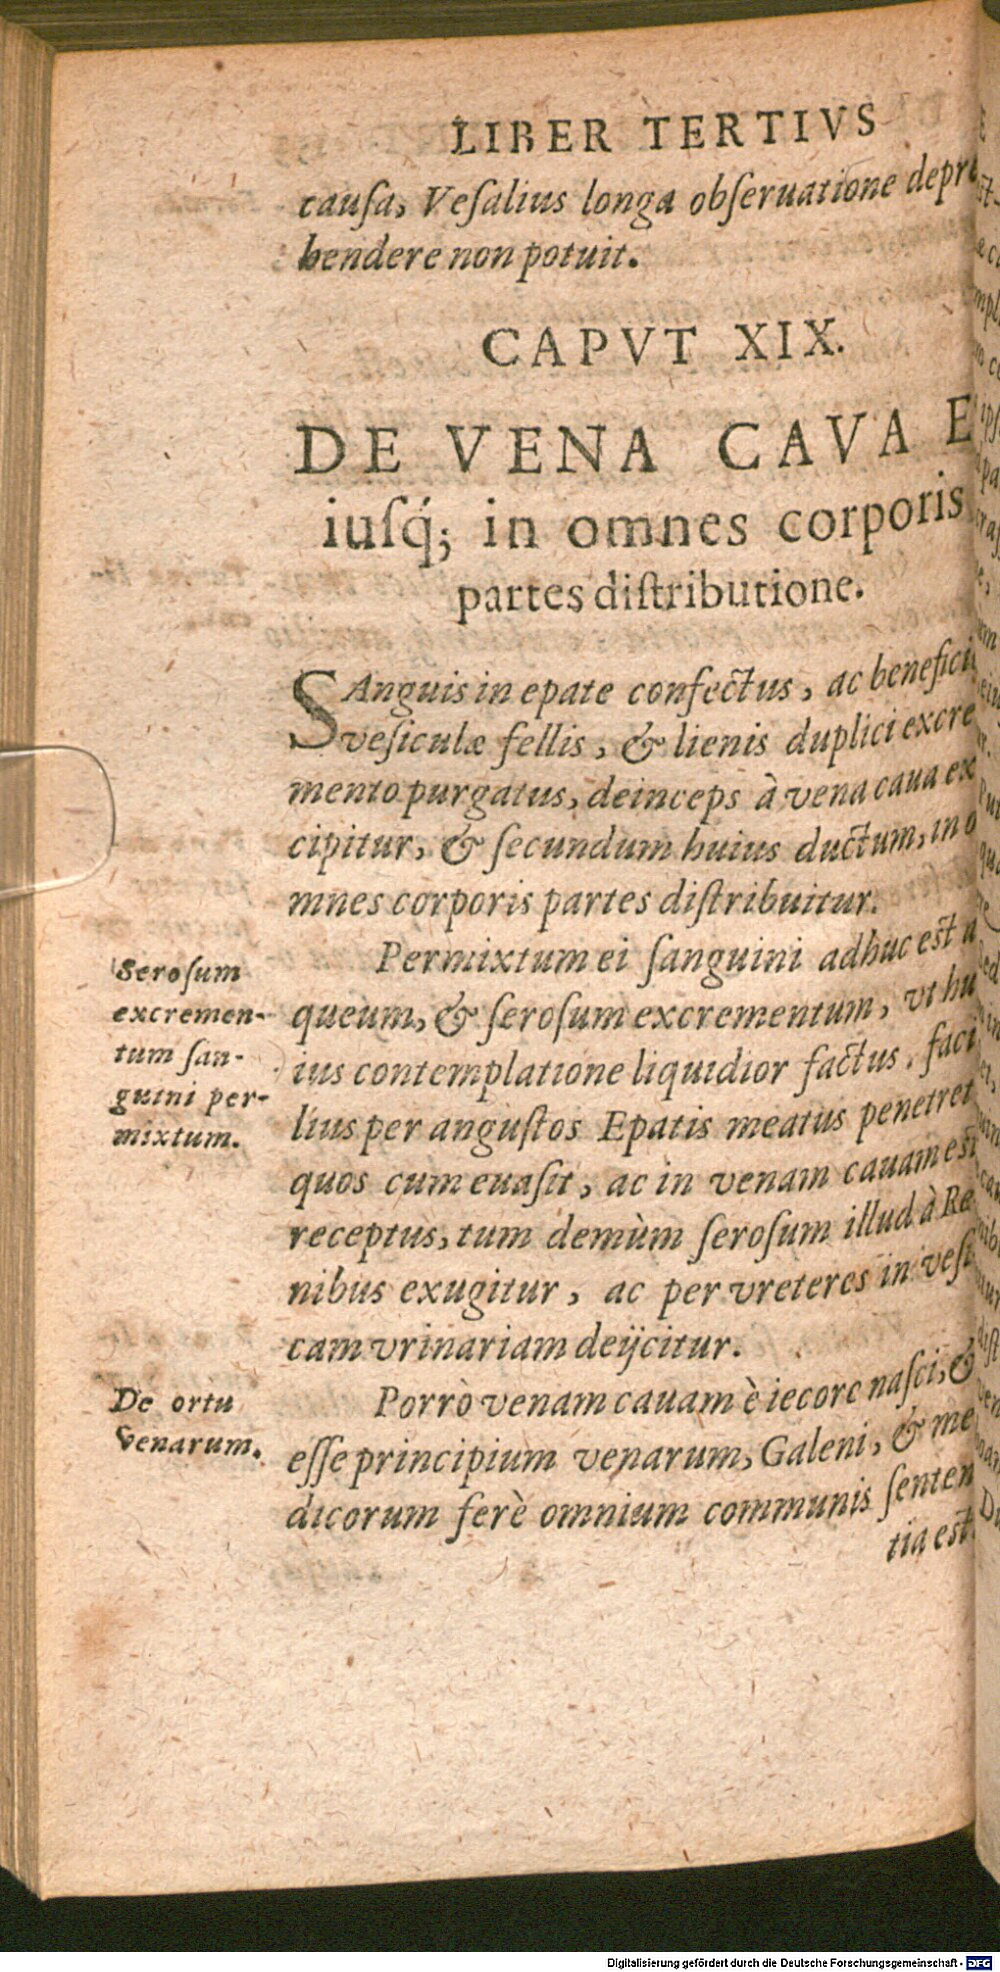 LIBER TERTIVS
cauſa, Veſalius longa obſeruatione depre
hendere non potuit.
CAPVT XIX.
DE VENA CAVA E
iuſq́; in omnes corporis
partes diſtributione.
SAnguis in epate confectus, ac beneficio
veſiculæ fellis, & lienis duplici excre
mento purgatus, deinceps à vena caua ex
cipitur, & ſecundum huius ductum, in o
mnes corporis partes diſtribuitur.
Permixtum ei ſanguini adhuc est a
queum, & ſeroſum excrementum, vt hu
ius contemplatione liquidior factus, faci
lius per anguſtos Epatis meatus penetret
quos cum euaſit, ac in venam cauam est
receptus, tum demùm ſeroſum illud à Re
nibus exugitur, ac per vreteres in veſi
cam vrinariam deijcitur.
Porrò venam cauam è iecore naſci, &
eſſe principium venarum, Galeni, & me
dicorum ferè omnium communis ſenten
tia est.
Seroſum
excremen-
tum ſan-
guini per-
mixtum.
De ortu
Venarum.
Digitalisierung gefördert durch die Deutsche Forschungsgemeinschaft - DFG